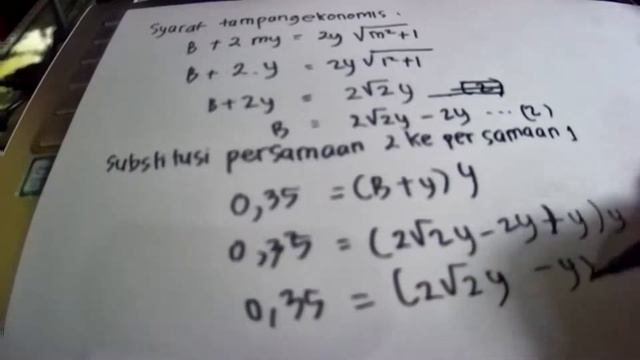 Syarat tampang ekonomis.
B + 2 my = 2y √m²+1
B + 2.y = 2y √1²+1
B + 2y = 2√2 y
B = 2√2y - 2y ... (2)
Substitusi persamaan 2 ke persamaan 1
0,35 = (B+y) y
0,35 = (2√2y - 2y + y) y
0,35 = (2√2y - y)